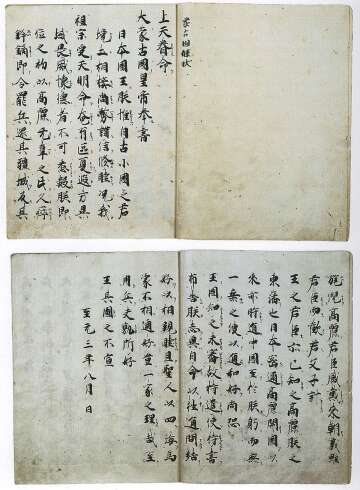 蒙古国牒状
上天眷命
大蒙古國皇帝奉書
日本國王朕惟自古小國之君
境土相接尚務講信修睦況我
祖宗受天明命奄有區夏遐方異
域畏威懷德者不可悉數朕即
位之初以高麗无辜之民久瘁
鋒鏑即令罷兵還其疆域反其
旄倪高麗君臣感戴來朝義雖
君臣而歡若父子計
王之君臣亦已知之高麗朕之
東藩也日本密邇高麗開國以
來亦時通中國至於朕躬而無
一乘之使以通和好尚恐
王國知之未審故特遣使持書
布告朕志冀自今以往通問結
好以相親睦且聖人以四海為
家不相通好豈一家之理哉至
用兵夫孰所好
王其圖之不宣
至元三年八月 日